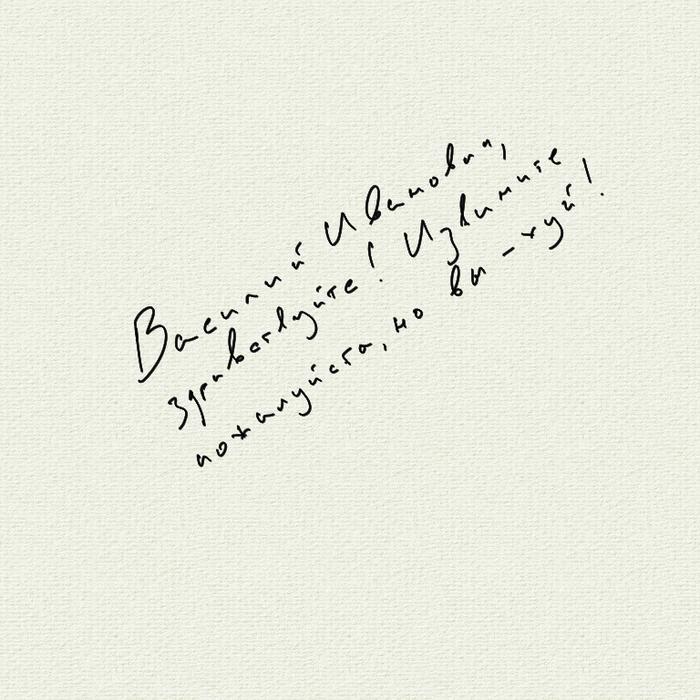 Василий Иванович,
здравствуйте! Извините
пожалуйста, но вы - хуй!